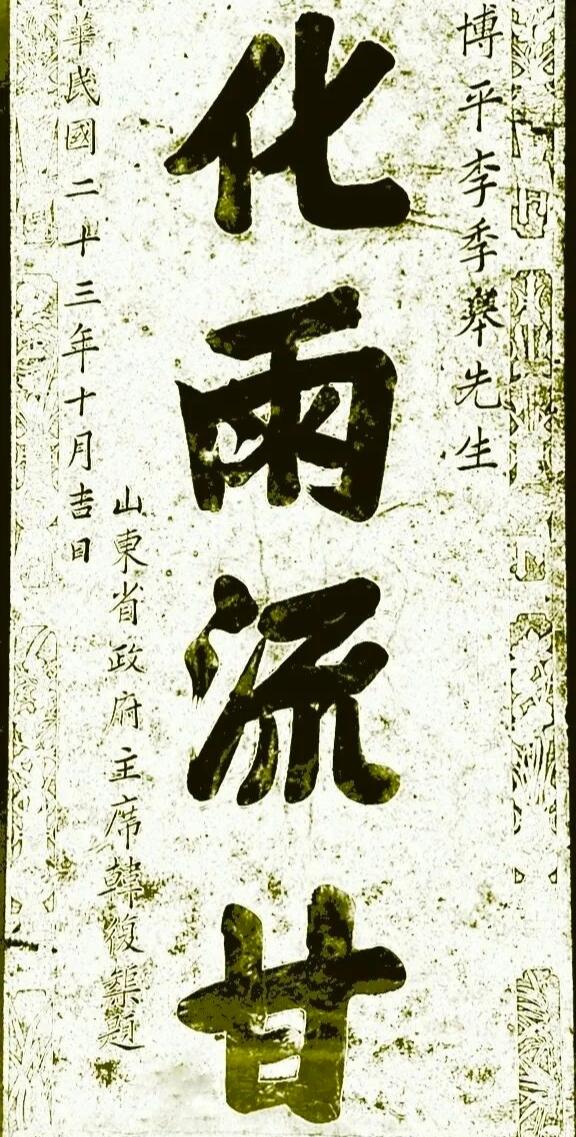 博平李季犖先生
化雨流甘
中華民國二十三年十月吉日
山東省政府主席韓復榘題